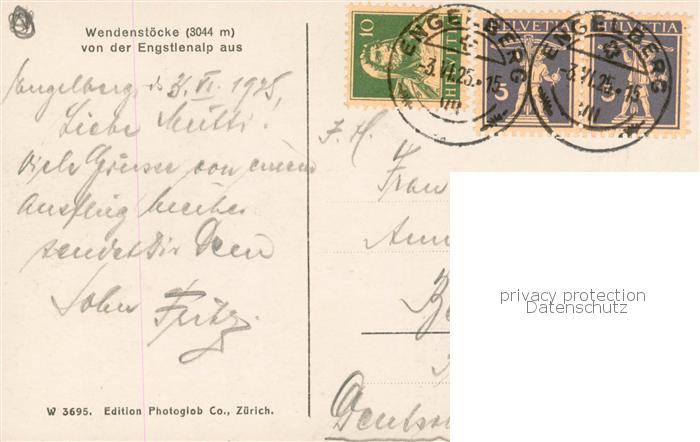 Wendenstöcke (3044 m)
von der Engstlenalp aus
Engelberg, d. 3. VI. 1925,
Liebe Mutti.
Viele Grüsse von einem
Ausflug hierher
sendet Dir Dein
Sohn Fritz.
W 3695. Edition Photoglob Co., Zürich.
10
HELVETIA
HELVETIA
5
5
ENGELBERG
-3.VI.25.-15
ENGELBERG
-3.VI.25.-15
Frau
privacy protection
Datenschutz